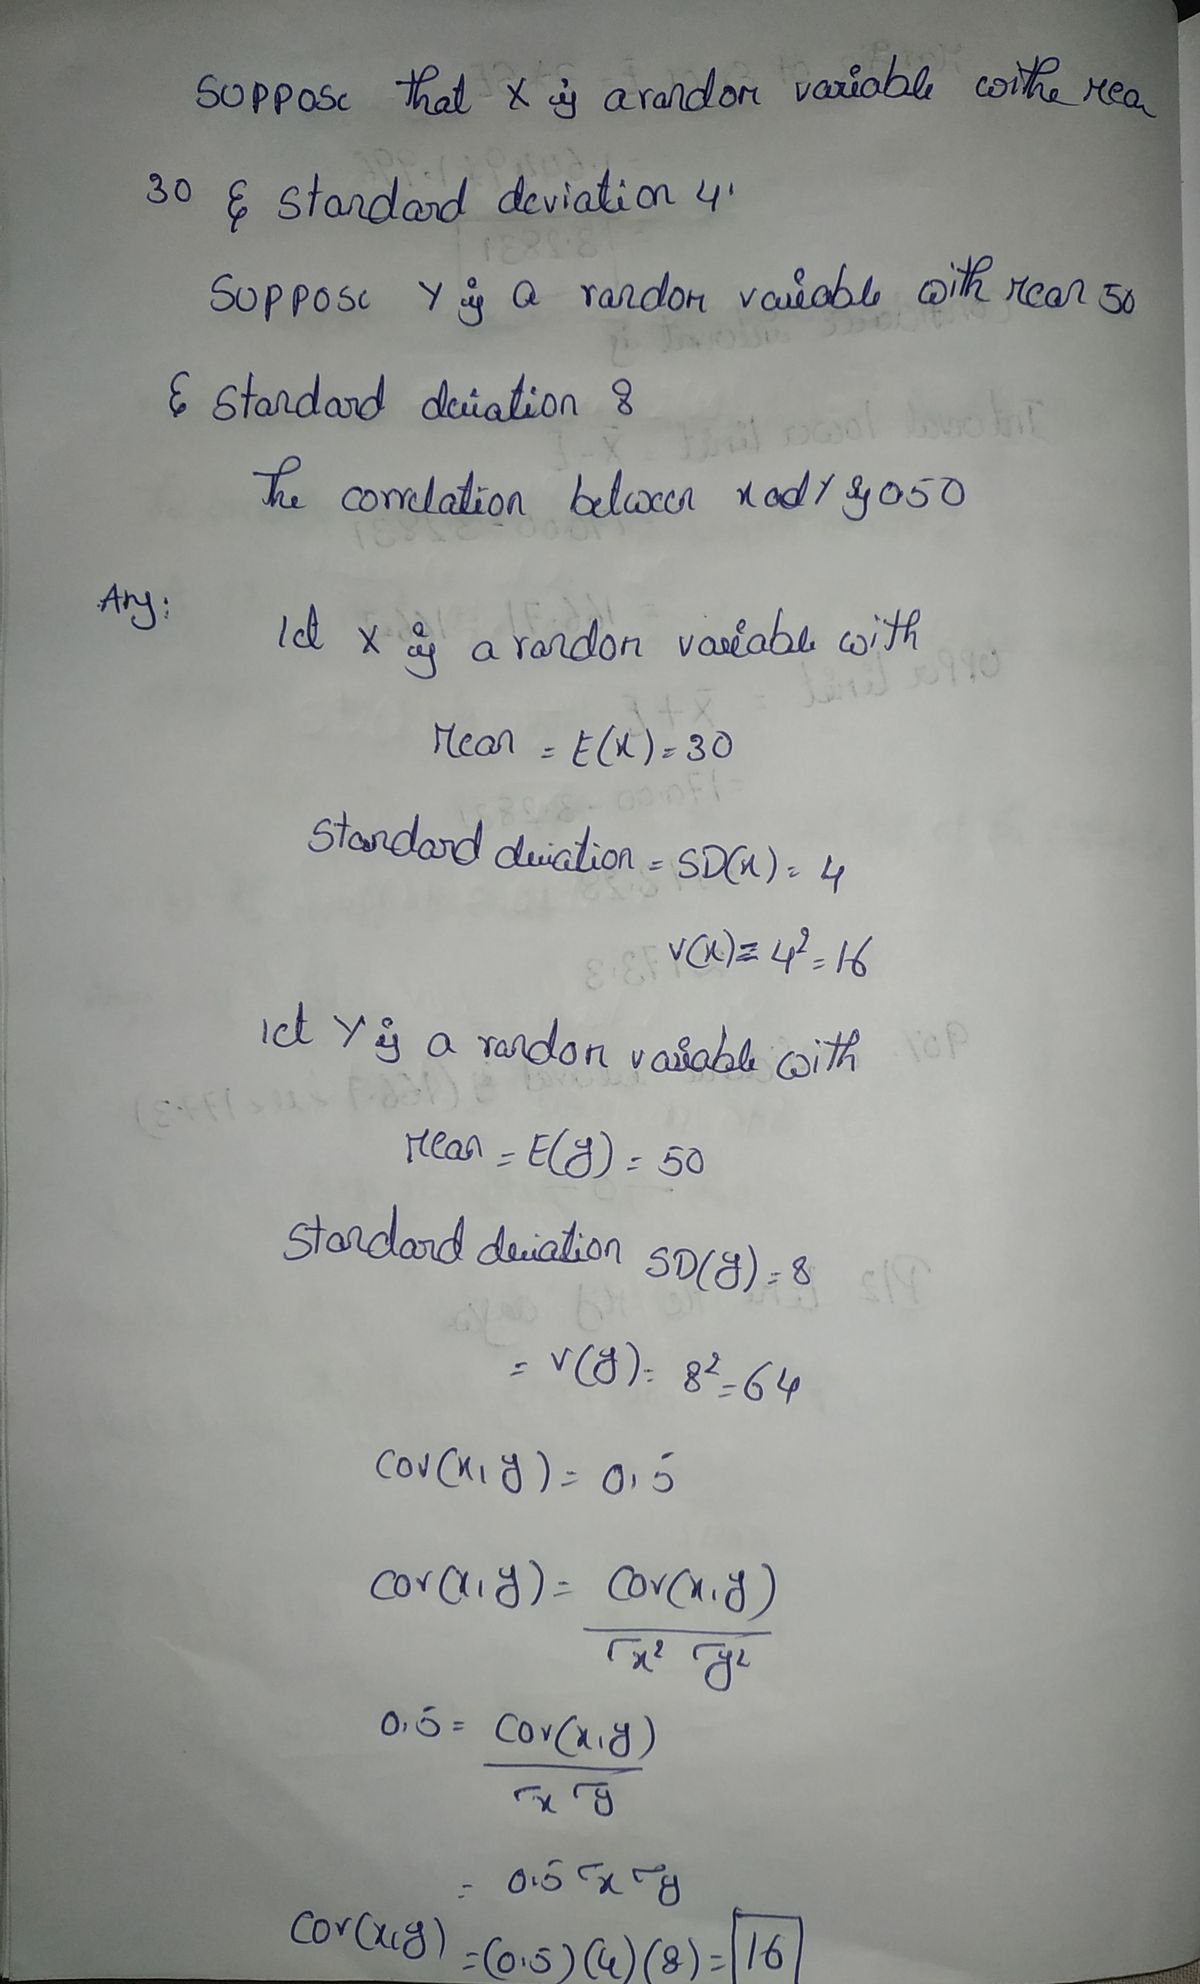 Suppose that X is a random variable withe mean
30 & standard deviation 4.
Suppose Y is a random variable with mean 50
& standard deviation 8
The correlation between x ad Y is 050
Ans:
let X is a random variable with
Mean = E(x) = 30
Standard deviation = SD(x) = 4
V(x) = 4² = 16
let Y is a random variable with
Mean = E(y) = 50
Standard deviation SD(y) = 8
= V(y) = 8² = 64
Cov(x, y) = 0.5
Cov(x, y) = Cov(x, y) / σx² σy²
0.5 = Cov(x, y) / σx σy
= 0.5 σx σy
Cov(x,y) = (0.5)(4)(8) = 16